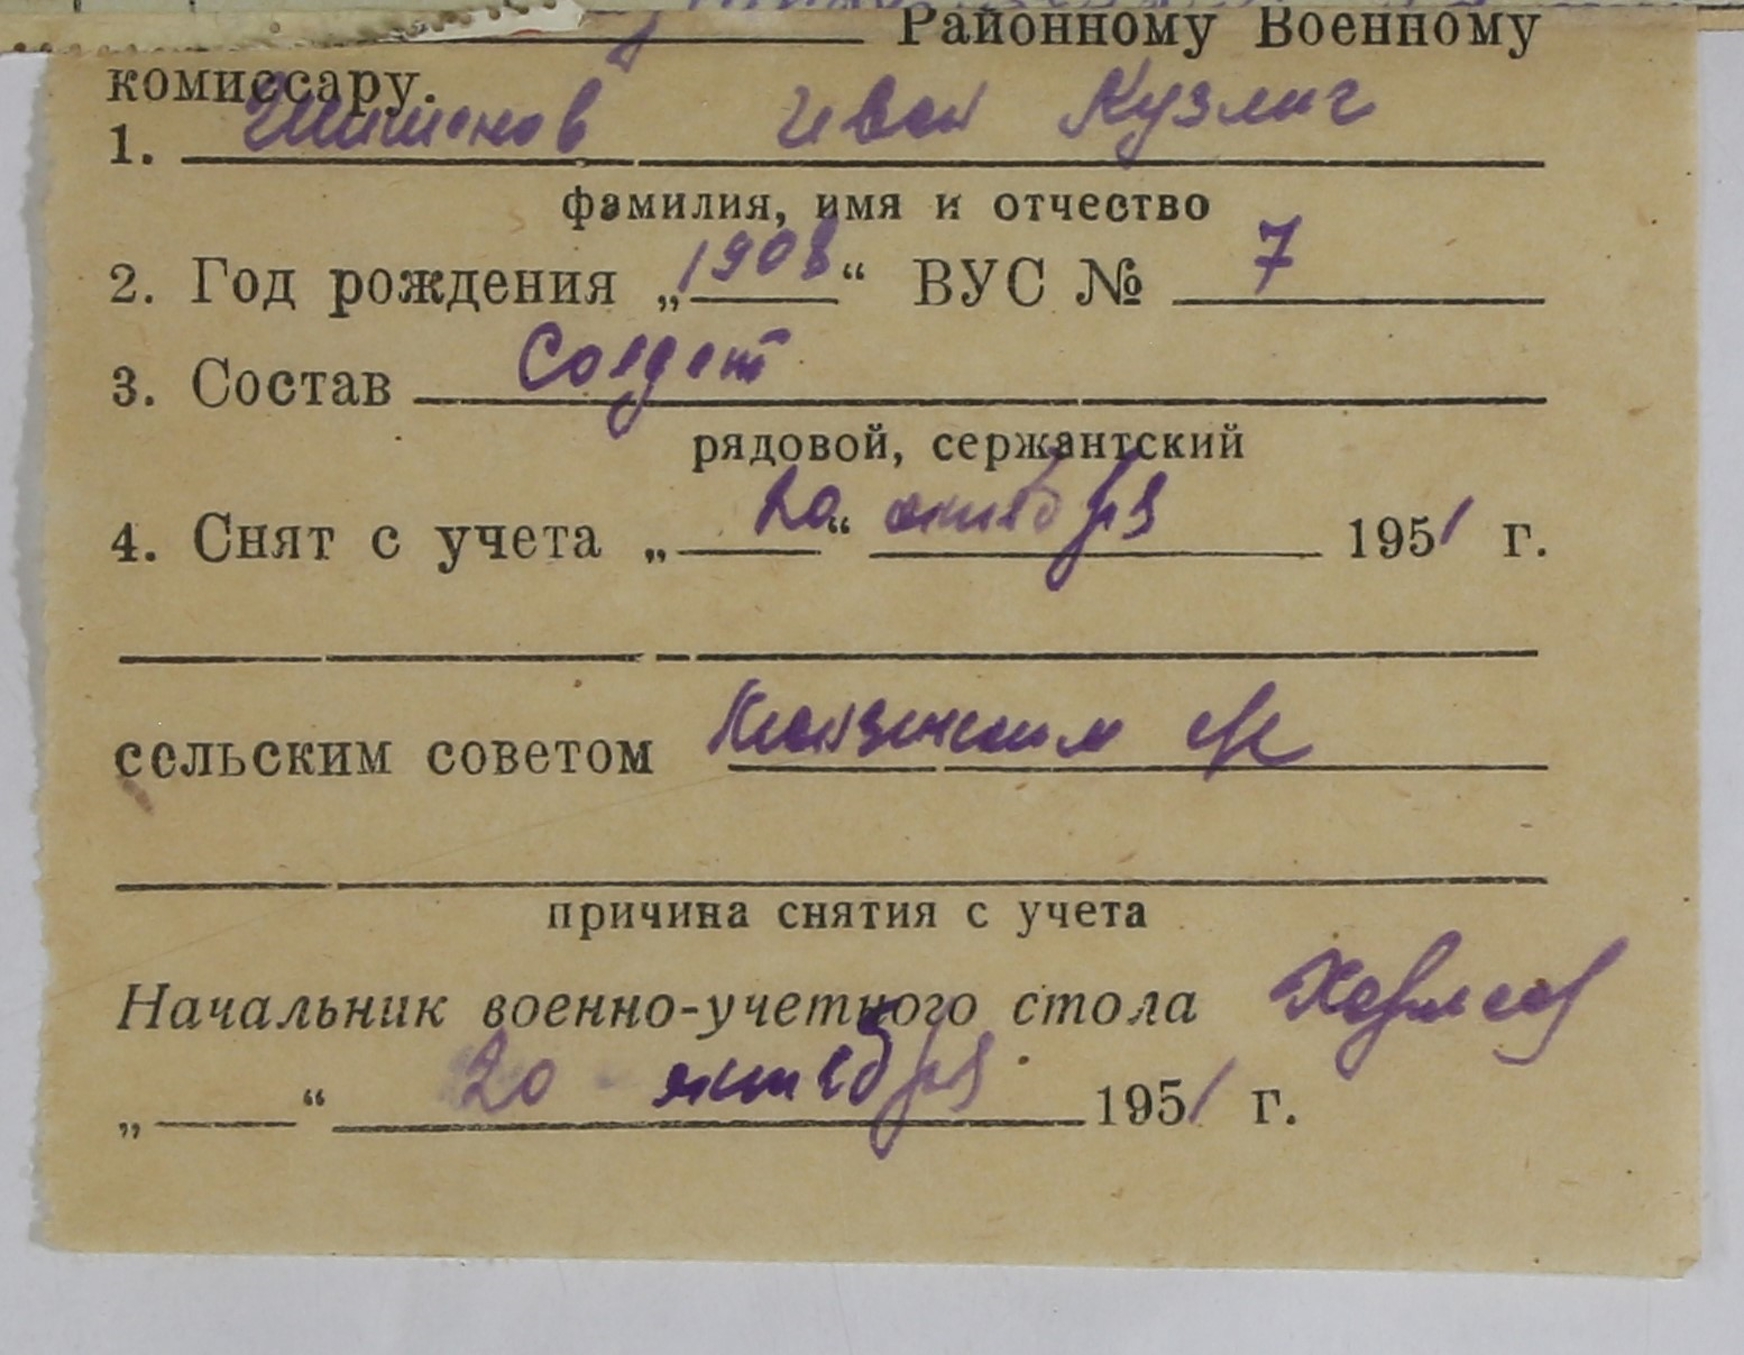 Районному Военному
комиссару.
1. Шишонов Иван Кузмич
фамилия, имя и отчество
2. Год рождения „1908“ ВУС № 7
3. Состав Солдат
рядовой, сержантский
4. Снят с учета „20“ октября 1951 г.
сельским советом
причина снятия с учета
Начальник военно-учетного стола
„ “ 20 октября 1951 г.